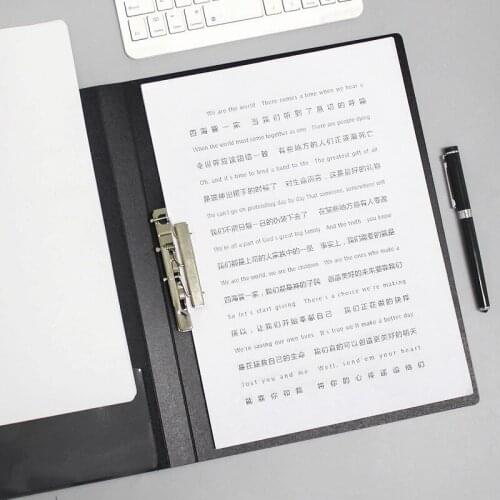 We are the world There comes a time when we hear a
四海皆一家 当我们听到了恳切的呼唤
When the world must come together as one There are people dying
全世界应该团结一致 有些地方的人们正逐渐死亡
Oh, and it's time to lend a hand to life The greatest gift of all
是该伸出援手的时候了 对生命而言，这是最好的礼物
We can't go on pretending day by day That someone, somewhere will
我们不能日复一日的伪装下去了 在某些地方总有人要改
We're all a part of God's great big family And the truth - you know
我们都是上帝的大家族中的一员 事实上，我们需要的就是
We are the world, we are the children We are the ones who make a
四海皆一家，我们都是神的子民 创造美好的未来要靠我们
So let's start giving There's a choice we're making
所以，让我们开始奉献自己 我们正在做的抉择
We're saving our own lives It's true we'll make a better day
是在拯救自己的生命 我们真的可以创造更美好的明天
Just you and me Well, send'em your heart
就靠你和我 将你的心传递给他们